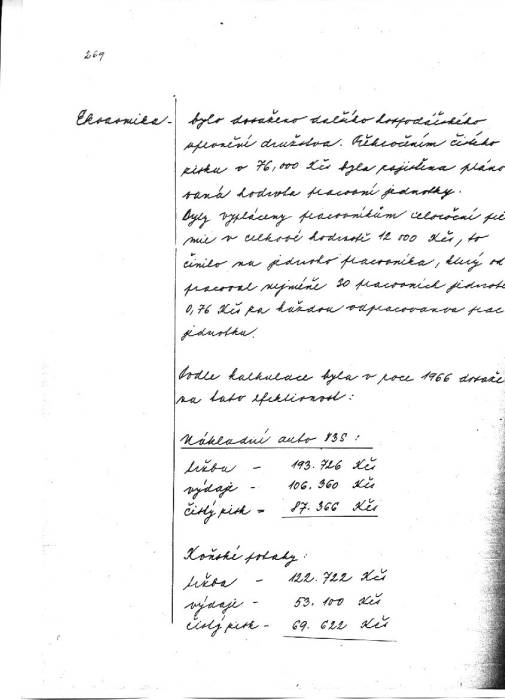 269
Ekonomika - bylo dosaženo dalšího hospodářského
upevnění družstva. Překročením čistého
zisku v 76,000 Kčs byla zajištěna pláno
vaná hodnota pracovní jednotky.
Byly vypláceny pracovníkům celoroční pré
mie v celkové hodnotě 12 000 Kčs, to
činilo na jednoho pracovníka, který od
pracoval nejméně 30 pracovních jednotek
0,76 Kčs za každou odpracovanou prac
jednotku.
Podle kalkulace byla v roce 1966 dosaže
na tato efektivnost:
Nákladní auto 83S:
tržba - 193.726 Kčs
výdaje - 106.360 Kčs
čistý zisk = 87.366 Kčs
Koňské potahy:
tržba - 122.722 Kčs
výdaje - 53.100 Kčs
čistý zisk - 69.622 Kčs